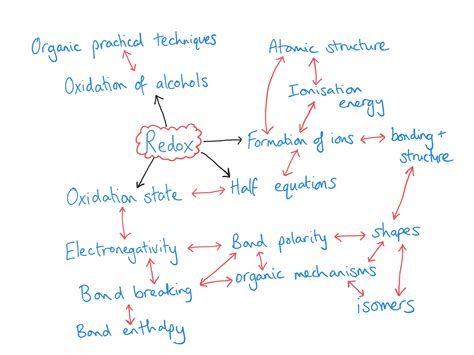 Organic practical techniques
Atomic structure
Oxidation of alcohols
Ionisation
energy
Redox
Formation of ions
bonding +
structure
Oxidation state
Half equations
Electronegativity
Bond polarity
shapes
Bond breaking
organic mechanisms
isomers
Bond enthalpy